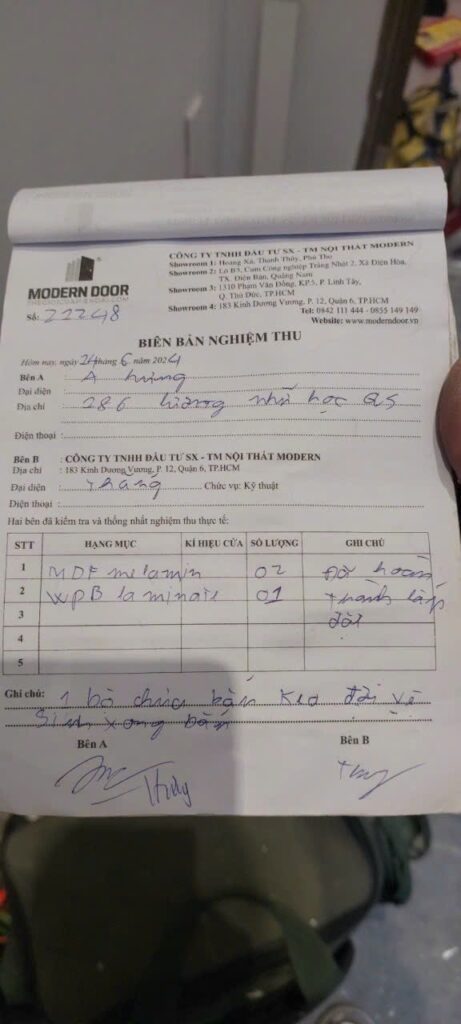 CÔNG TY TNHH ĐẦU TƯ SX - TM NỘI THẤT MODERN
Showroom 1: Hoàng Xá, Thanh Thủy, Phú Thọ
Showroom 2: Lô B3, Cụm Công nghiệp Trảng Nhật 2, Xã Điện Hòa,
TX. Điện Bàn, Quảng Nam
Showroom 3: 1310 Phạm Văn Đồng, KP.5, P. Linh Tây,
Q. Thủ Đức, TP.HCM
Showroom 4: 183 Kinh Dương Vương, P. 12, Quận 6, TP.HCM
Tel: 0842 111 444 - 0855 149 149
Website: www.moderndoor.vn
MODERN DOOR
Số: 22248
BIÊN BẢN NGHIỆM THU
Hôm nay, ngày 24 tháng 6 năm 2024
Bên A : A hùng
Đại diện :
Địa chỉ : 286 lương nhữ học Q5
Điện thoại :
Bên B : CÔNG TY TNHH ĐẦU TƯ SX - TM NỘI THẤT MODERN
Địa chỉ : 183 Kinh Dương Vương, P. 12, Quận 6, TP.HCM
Đại diện : Thắng Chức vụ: Kỹ thuật
Điện thoại :
Hai bên đã kiểm tra và thống nhất nghiệm thu thực tế:
STT HẠNG MỤC KÍ HIỆU CỬA SỐ LƯỢNG GHI CHÚ
1 MDF melamin 02 Đã hoàn
2 WPB laminate 01 thành lắp
3 đặt
4
5
Ghi chú: 1 bộ chưa bắn keo đợi vệ
sinh xong bắn
Bên A Bên B
Thủy